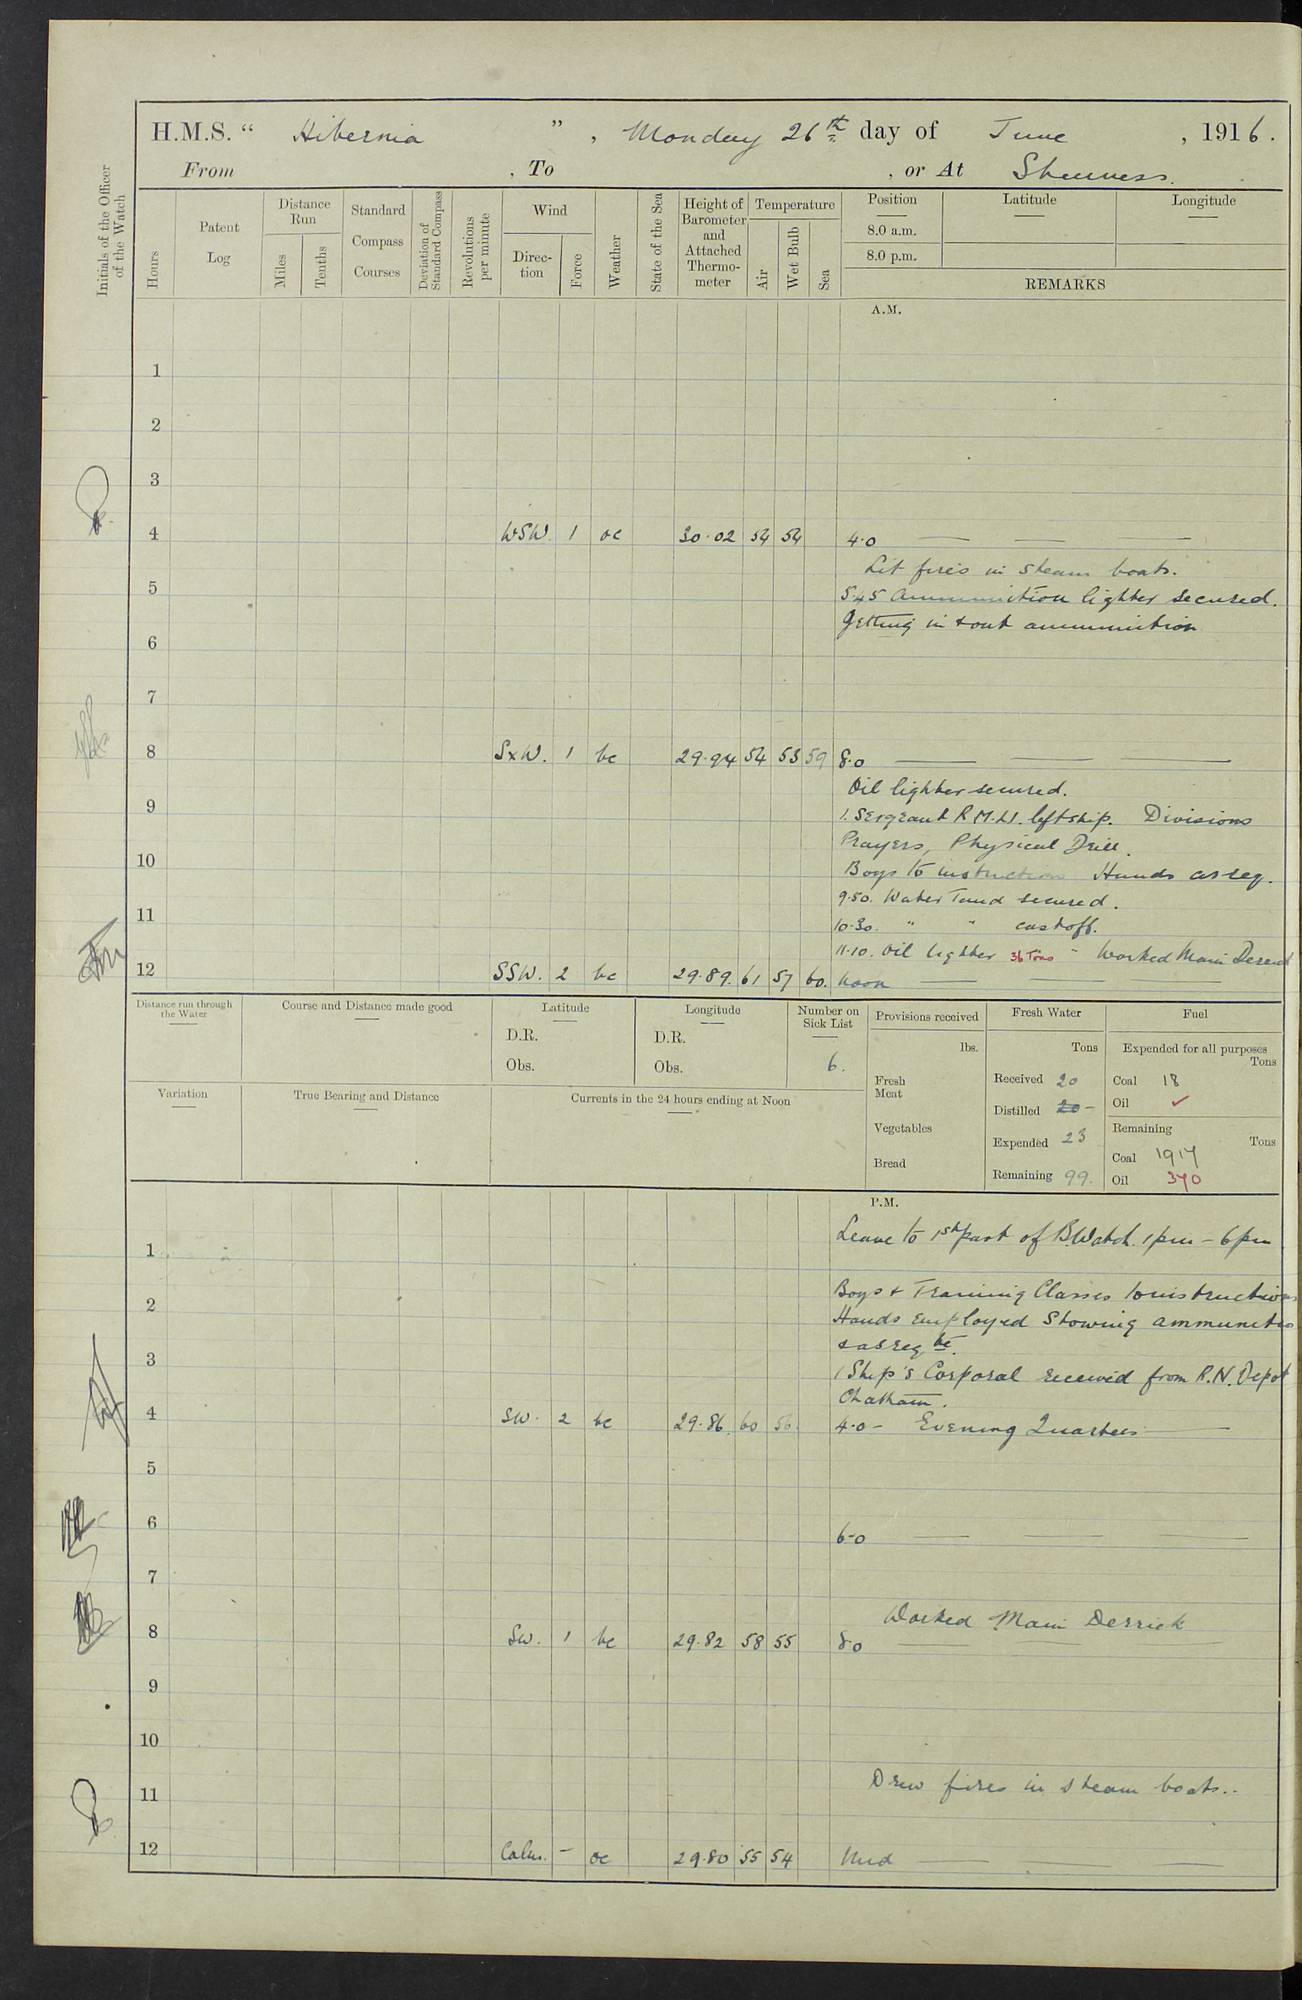 H.M.S. “ Hibernia ” , Monday 26th day of June , 1916.
From , To , or At Sheerness.
Initials of the Officer of the Watch
Hours
Patent Log
Distance Run
Miles
Tenths
Standard Compass Courses
Deviation of Standard Compass
Revolutions per minute
Wind
Direction
Force
Weather
State of the Sea
Height of Barometer and Attached Thermometer
Temperature
Air
Wet Bulb
Sea
Position
Latitude
Longitude
8.0 a.m.
8.0 p.m.
REMARKS
A.M.
1
2
3
4 WSW. 1 oc 30.02 54 54 4.0
Lit fires in steam boats.
5
5.45 Ammunition lighter secured.
Getting in & out ammunition
6
7
8 SxW. 1 bc 29.94 54 53 59 8.0
Oil lighter secured.
9
1. Sergeant R.M.L.I. left ship. Divisions
Prayers, Physical Drill.
10
Boys to instruction Hands as req.
9.50. Water Tank secured.
11
10.30. " " cast off.
11.10. Oil lighter 36 Tons - Worked Main Derrick
12 SSW. 2 bc 29.89. 61 57 60. Noon
Distance run through the Water
Course and Distance made good
Latitude
D.R.
Obs.
Longitude
D.R.
Obs.
Number on Sick List
6.
Provisions received
lbs.
Fresh Meat
Vegetables
Bread
Fresh Water
Tons
Received 20
Distilled 20 -
Expended 23
Remaining 99.
Fuel
Expended for all purposes
Tons
Coal 18
Oil ✓
Remaining
Tons
Coal 1917
Oil 370
Variation
True Bearing and Distance
Currents in the 24 hours ending at Noon
P.M.
Leave to 1st part of B.Watch. 1pm - 6pm
1
Boys & Training Classes to instructions
2
Hands employed stowing ammunitio
& as reqte.
3
1 Ship's Corporal received from R.N. Depot
Chatham.
4 SW. 2 bc 29.86. 60 56 4.0 - Evening Quarters
5
6
6.0
7
Worked Main Derrick
8 SW. 1 bc 29.82 58 55 8.0
9
10
11
Drew fires in steam boats..
12 Calm. - oc 29.80 55 54 Mid